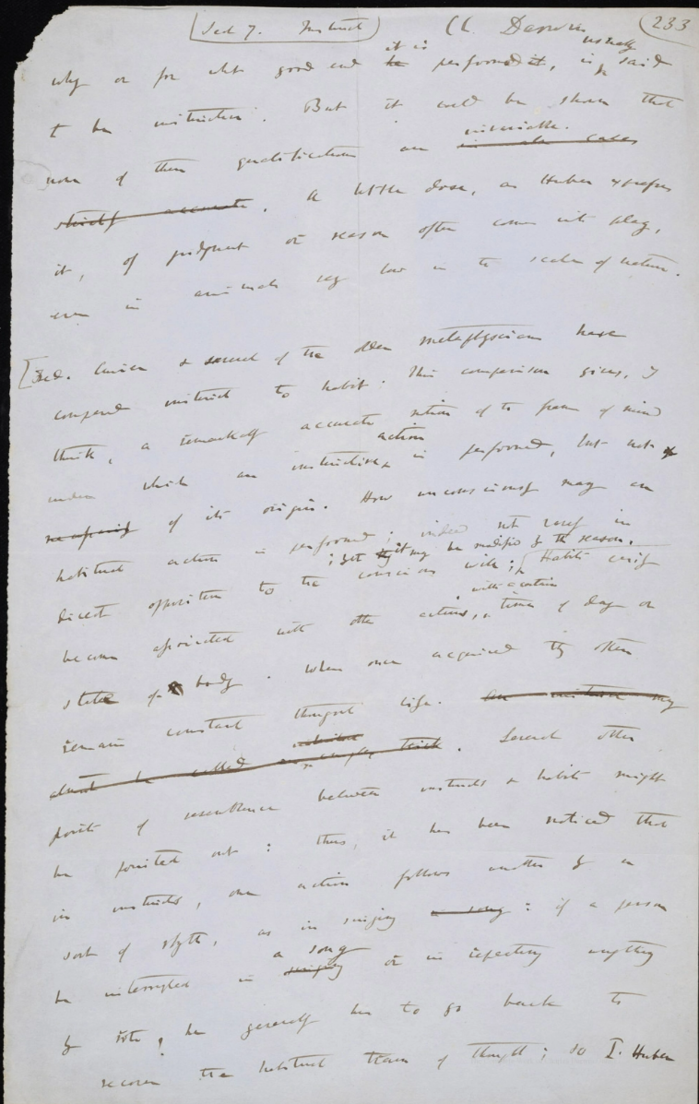 Sect 7. Instinct (C. Darwin 233
it is usually
why or for what good end he performed it, is said
to be instinctive. But it could be shown that
universable.
none of these qualifications are in also cases
strictly accurate. A little dose, as Huber expresses
it, of judgment or reason often comes into play,
even in animals very low in the scale of nature.
Fred. Cuvier & several of the older metaphysicians have
compared instinct to habit. This comparison gives, I
think, a remarkably accurate notion of the frame of mind
action
under which an instinctive is performed, but not
necessarily of its origin. How unconsciously many are
habitual actions performed; indeed not rarely in
; yet they may be modified by the reason.
direct opposition to the conscious will; Habits easily
with certain
become associated with other actions, times of day or
states of body. When once acquired they often
remain constant throughout life. An instinct may
almost be called think. Several other
points of resemblance between instincts & habits might
be pointed out: thus, it has been noticed that
in instincts, one action follows another by a
sort of rhythm, as in singing a song: if a person
a song
be interrupted in singing or in repeating anything
by rote, he generally has to go back to
recover the habitual train of thought; so P. Huber